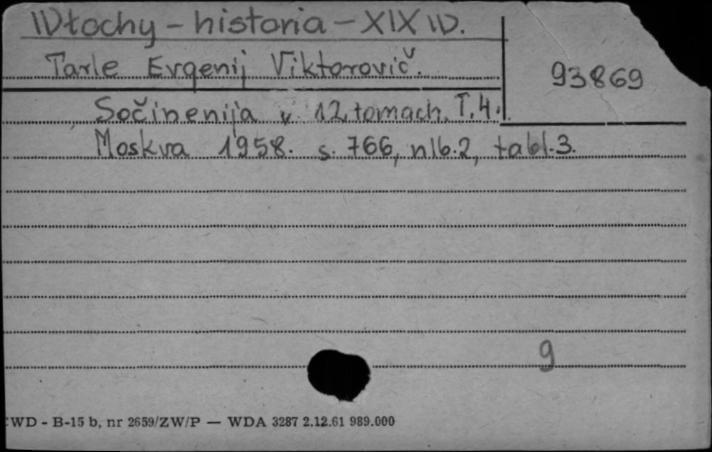 Włochy - historia - XIX w.
Tarle Evgenij Viktorovič.
93869
Sočinenija v 12 tomach. T.4.
Moskva 1958. s. 766, nlb.2, tabl.3.
9
WD - B-15 b, nr 2659/ZW/P — WDA 3287 2.12.61 989.000